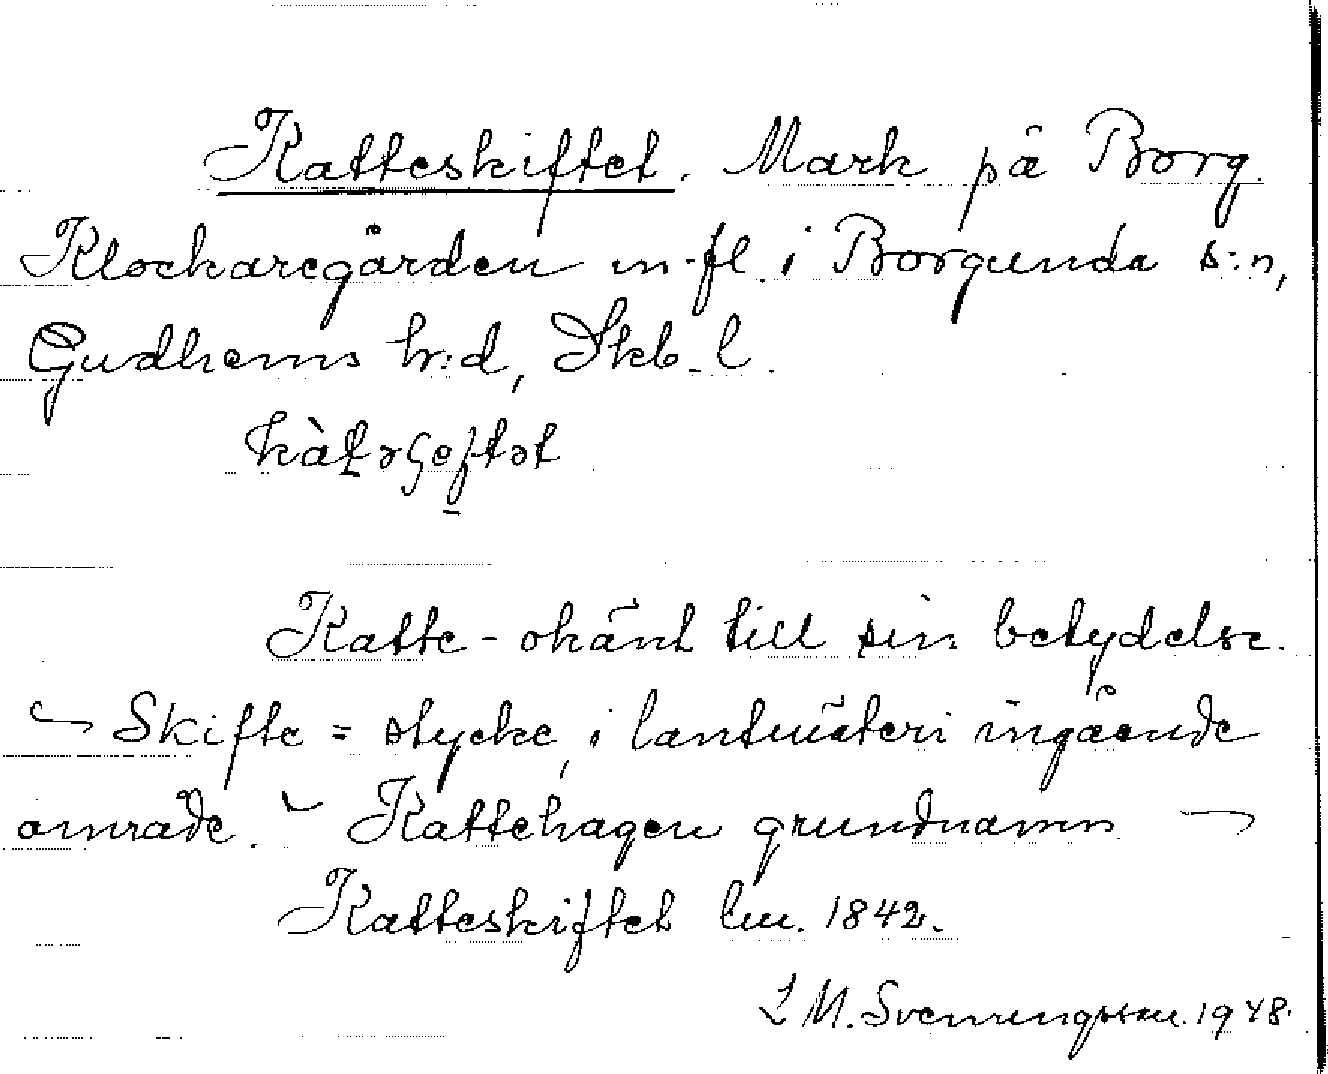 Katteskiftet. Mark på Borg.
Klockaregården m.fl. i Borgunda s:n,
Gudhems h:d, Skb. l.
Katte- okänt till sin betydelse.
Skifte = stycke, i lantmäteri ingående
område. Kattehagen grundnamn
Katteskiftet lm. 1842.
L M. Svenningsson. 1948.